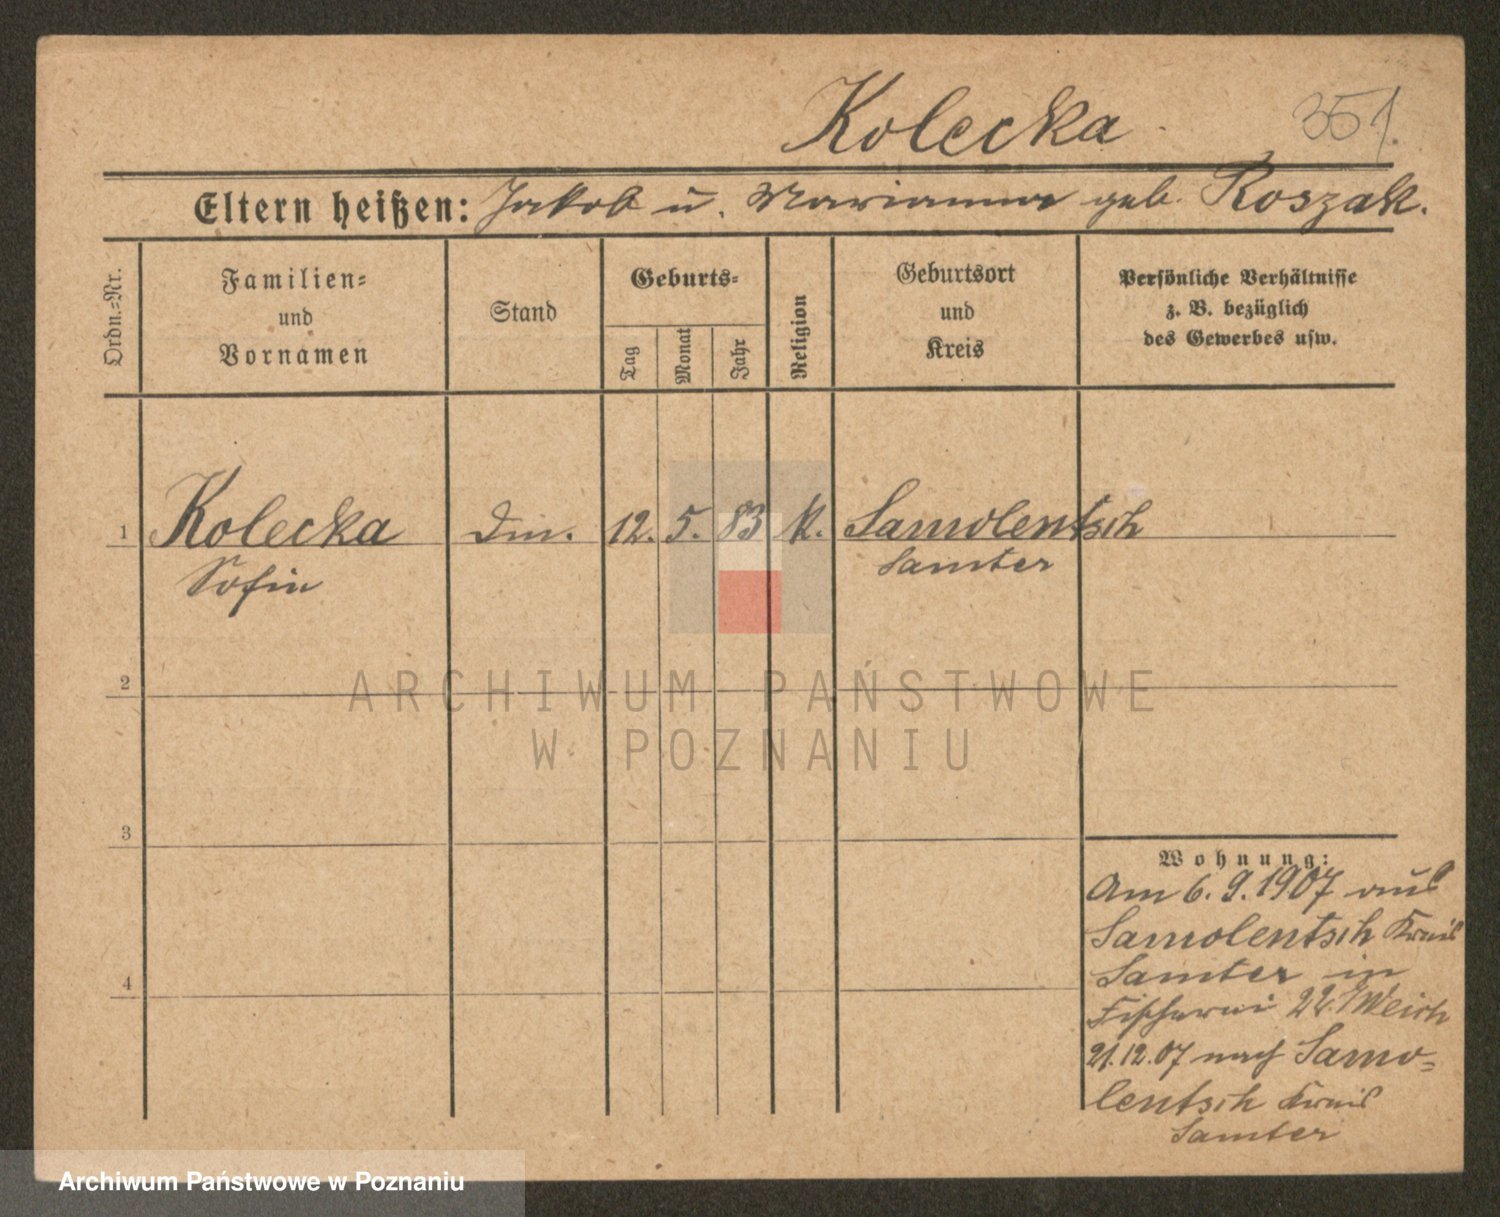 Kolecka
351.
Eltern heißen: Jakob u. Marianna geb. Roszak.
Ordn.-Nr.
Familien-
und
Vornamen
Stand
Geburts-
Tag
Monat
Jahr
Religion
Geburtsort
und
Kreis
Persönliche Verhältnisse
z. B. bezüglich
des Gewerbes usw.
1 Kolecka Dm. 12. 5. 83 k. Samolentsch
Sofie Samter
2
3
4
Wohnung:
Am 6.9.1907 aus
Samolentsch Kreis
Samter in
Fischerei 22.
21.12.07 nach Samo-
lentsch Kreis
Samter
ARCHIWUM PAŃSTWOWE
W POZNANIU
Archiwum Państwowe w Poznaniu